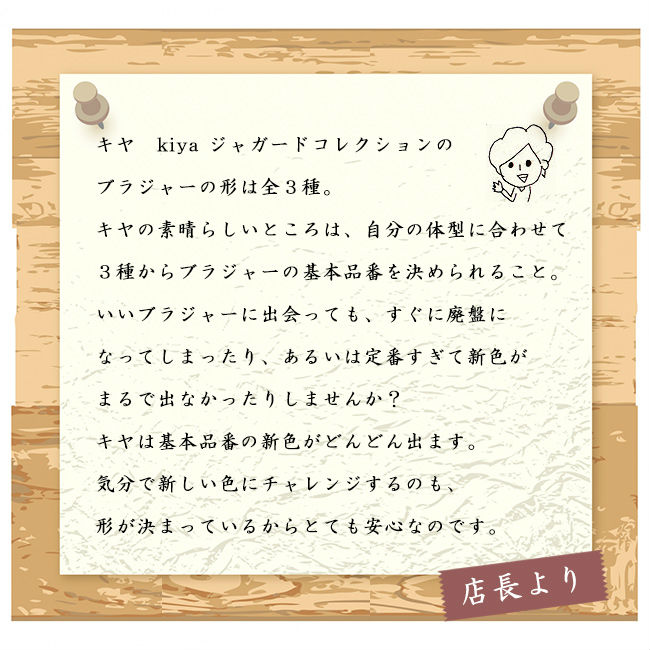 キヤ　kiya ジャガードコレクションの
ブラジャーの形は全３種。
キヤの素晴らしいところは、自分の体型に合わせて
３種からブラジャーの基本品番を決められること。
いいブラジャーに出会っても、すぐに廃盤に
なってしまったり、あるいは定番すぎて新色が
まるで出なかったりしませんか？
キヤは基本品番の新色がどんどん出ます。
気分で新しい色にチャレンジするのも、
形が決まっているからとても安心なのです。
店長より